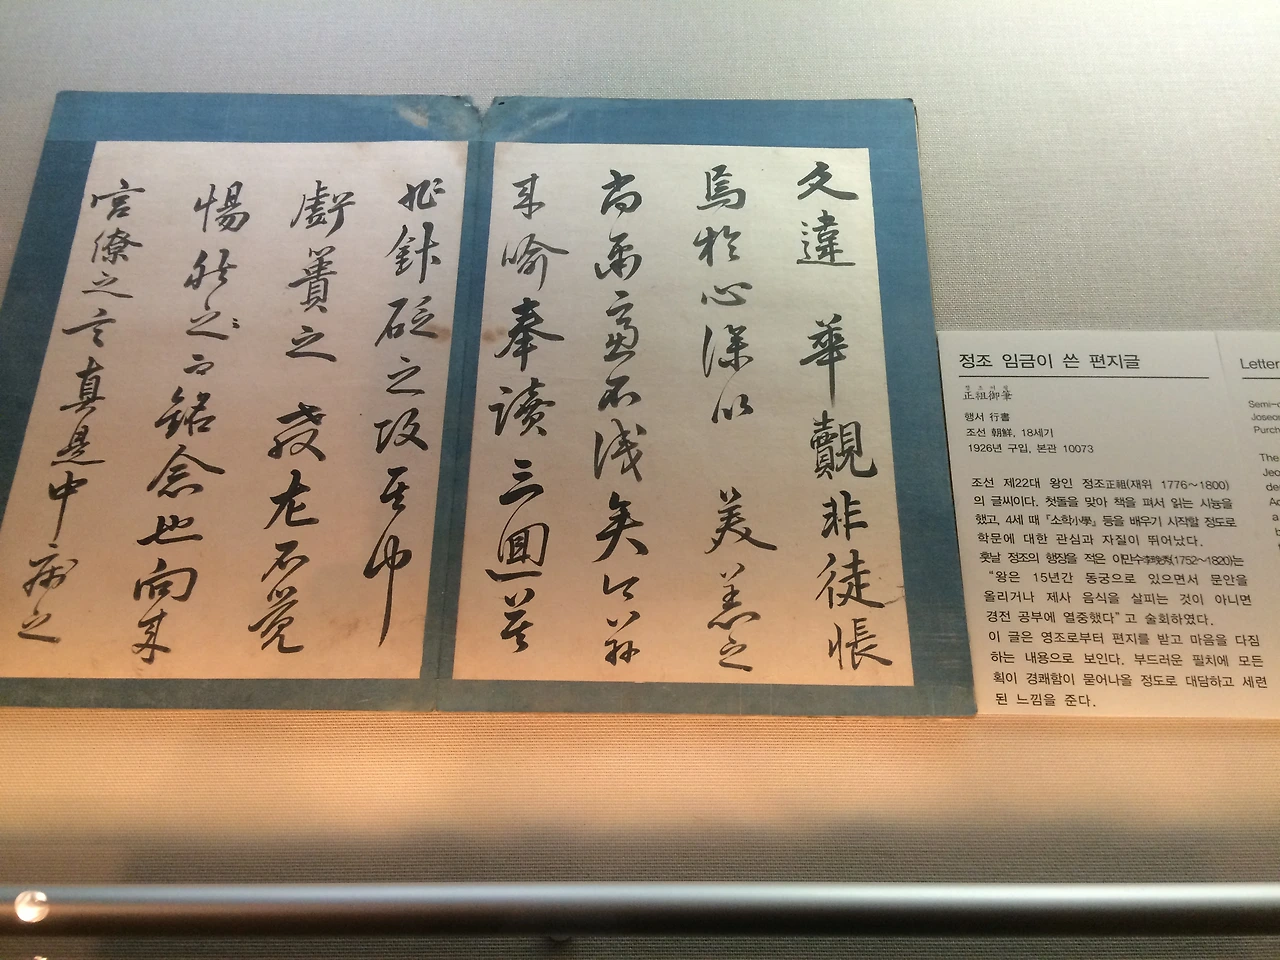 文違 華覿非徒悵
焉於心深以 美恙之
尚不淺矣
來喻奉讀三
非針砭之攻其中
之 老不覺
惕然銘念也向來
宮僚之言真是中病之
정조 임금이 쓴 편지글
정조어필
正祖御筆
행서 行書
조선 朝鮮, 18세기
1926년 구입, 본관 10073
조선 제22대 왕인 정조正祖(재위 1776~1800)
의 글씨이다. 첫돌을 맞아 책을 펴서 읽는 시늉을
했고, 4세 때 『소학小學』 등을 배우기 시작할 정도로
학문에 대한 관심과 자질이 뛰어났다.
훗날 정조의 행장을 적은 이만수李晩秀(1752~1820)는
“왕은 15년간 동궁으로 있으면서 문안을
올리거나 제사 음식을 살피는 것이 아니면
경전 공부에 열중했다”고 술회하였다.
이 글은 영조로부터 편지를 받고 마음을 다짐
하는 내용으로 보인다. 부드러운 필치에 모든
획이 경쾌함이 묻어나올 정도로 대담하고 세련
된 느낌을 준다.
Letter
Semi-c
Joseon
Purch
The
Jeo
de
Ac
a